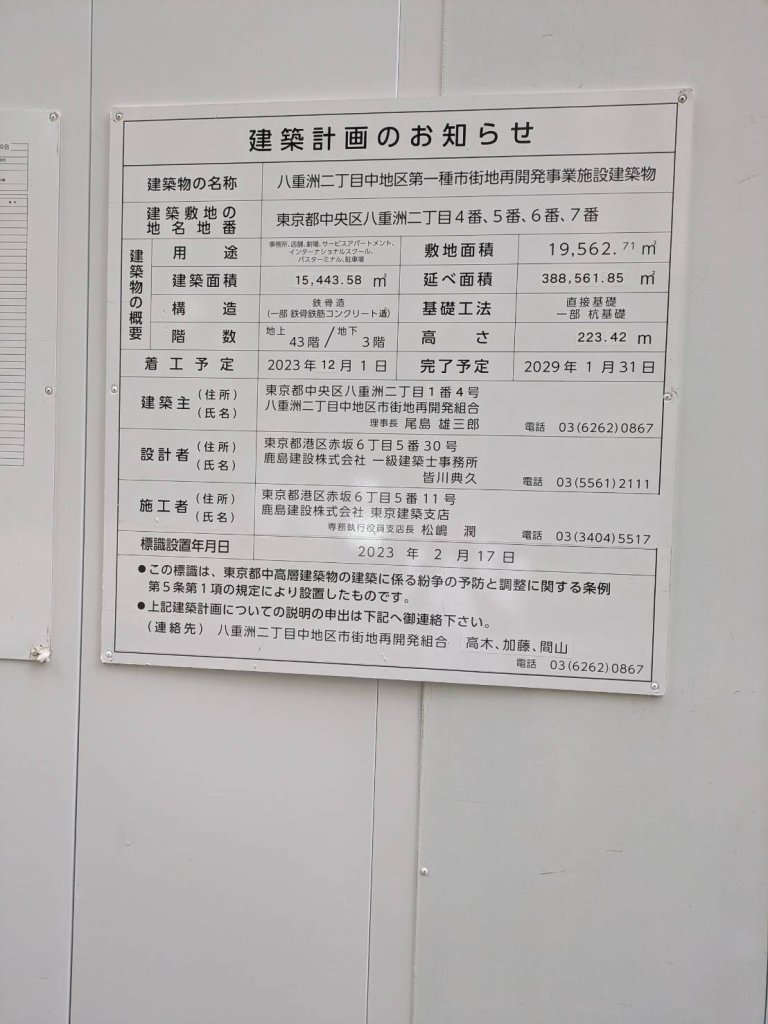 建築計画のお知らせ
建築物の名称 八重洲二丁目中地区第一種市街地再開発事業施設建築物
建築敷地の地名地番 東京都中央区八重洲二丁目4番、5番、6番、7番
建築物の概要
用途 事務所、店舗、劇場、サービスアパートメント、
インターナショナルスクール、
バスターミナル、駐車場
敷地面積 19,562.71㎡
建築面積 15,443.58 ㎡ 延べ面積 388,561.85 ㎡
構造 鉄骨造
(一部 鉄骨鉄筋コンクリート造)
基礎工法 直接基礎
一部 杭基礎
階数 地上43階/地下3階 高さ 223.42 m
着工予定 2023年12月1日 完了予定 2029年1月31日
建築主 (住所) 東京都中央区八重洲二丁目1番4号
(氏名) 八重洲二丁目中地区市街地再開発組合
理事長 尾島 雄三郎 電話 03(6262)0867
設計者 (住所) 東京都港区赤坂6丁目5番30号
(氏名) 鹿島建設株式会社 一級建築士事務所
皆川典久 電話 03(5561)2111
施工者 (住所) 東京都港区赤坂6丁目5番11号
(氏名) 鹿島建設株式会社 東京建築支店
専務執行役員支店長 松嶋 潤 電話 03(3404)5517
標識設置年月日 2023 年 2 月 17 日
●この標識は、東京都中高層建築物の建築に係る紛争の予防と調整に関する条例
第5条第1項の規定により設置したものです。
●上記建築計画についての説明の申出は下記へ御連絡下さい。
(連絡先) 八重洲二丁目中地区市街地再開発組合 高木、加藤、間山
電話 03(6262)0867